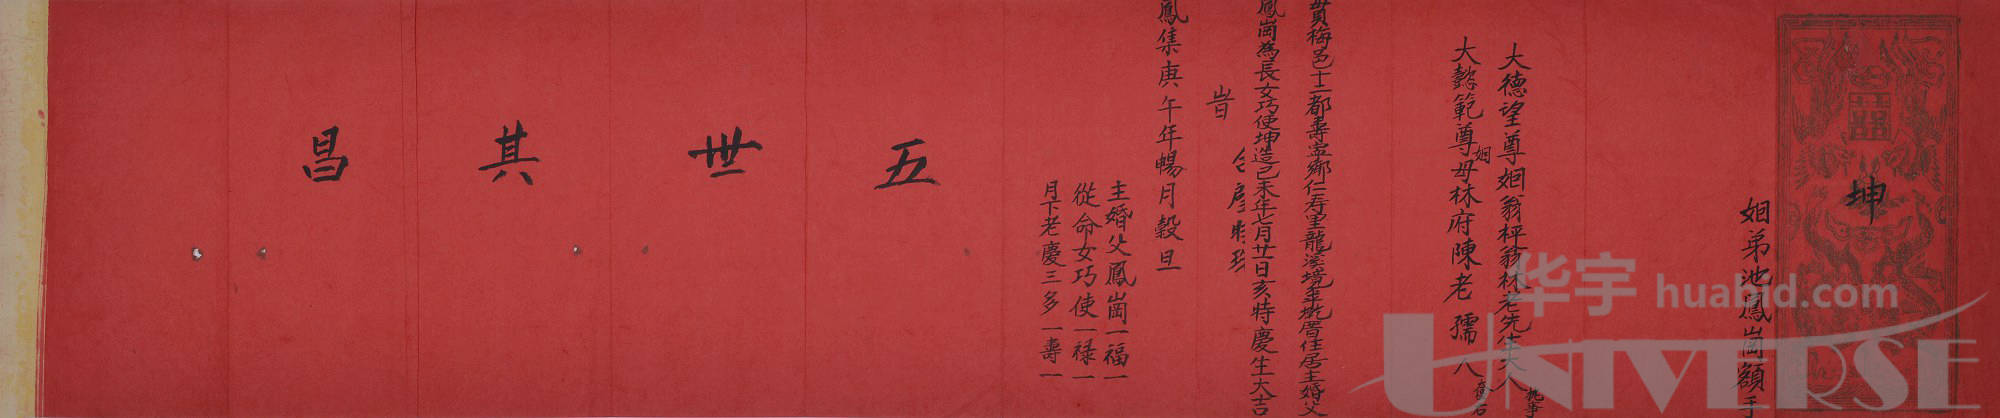 坤
囍
姻弟池鳳崗額手
大德望尊姻翁枰翁林老先生大人執事
大懿範尊姻母林府陳老孺人奩右
貫梅邑十二都壽寧鄉仁壽里龍溪境 厝住居主婚父
鳳崗為長女巧使坤造己未年七月廿日亥特慶生大吉
旹
鳳集庚午年暢月穀旦
主婚父鳳崗一福一
從命女巧使一禄一
月下老慶三多一壽一
五世其昌
华宇 huabid.com
UNIVERSE